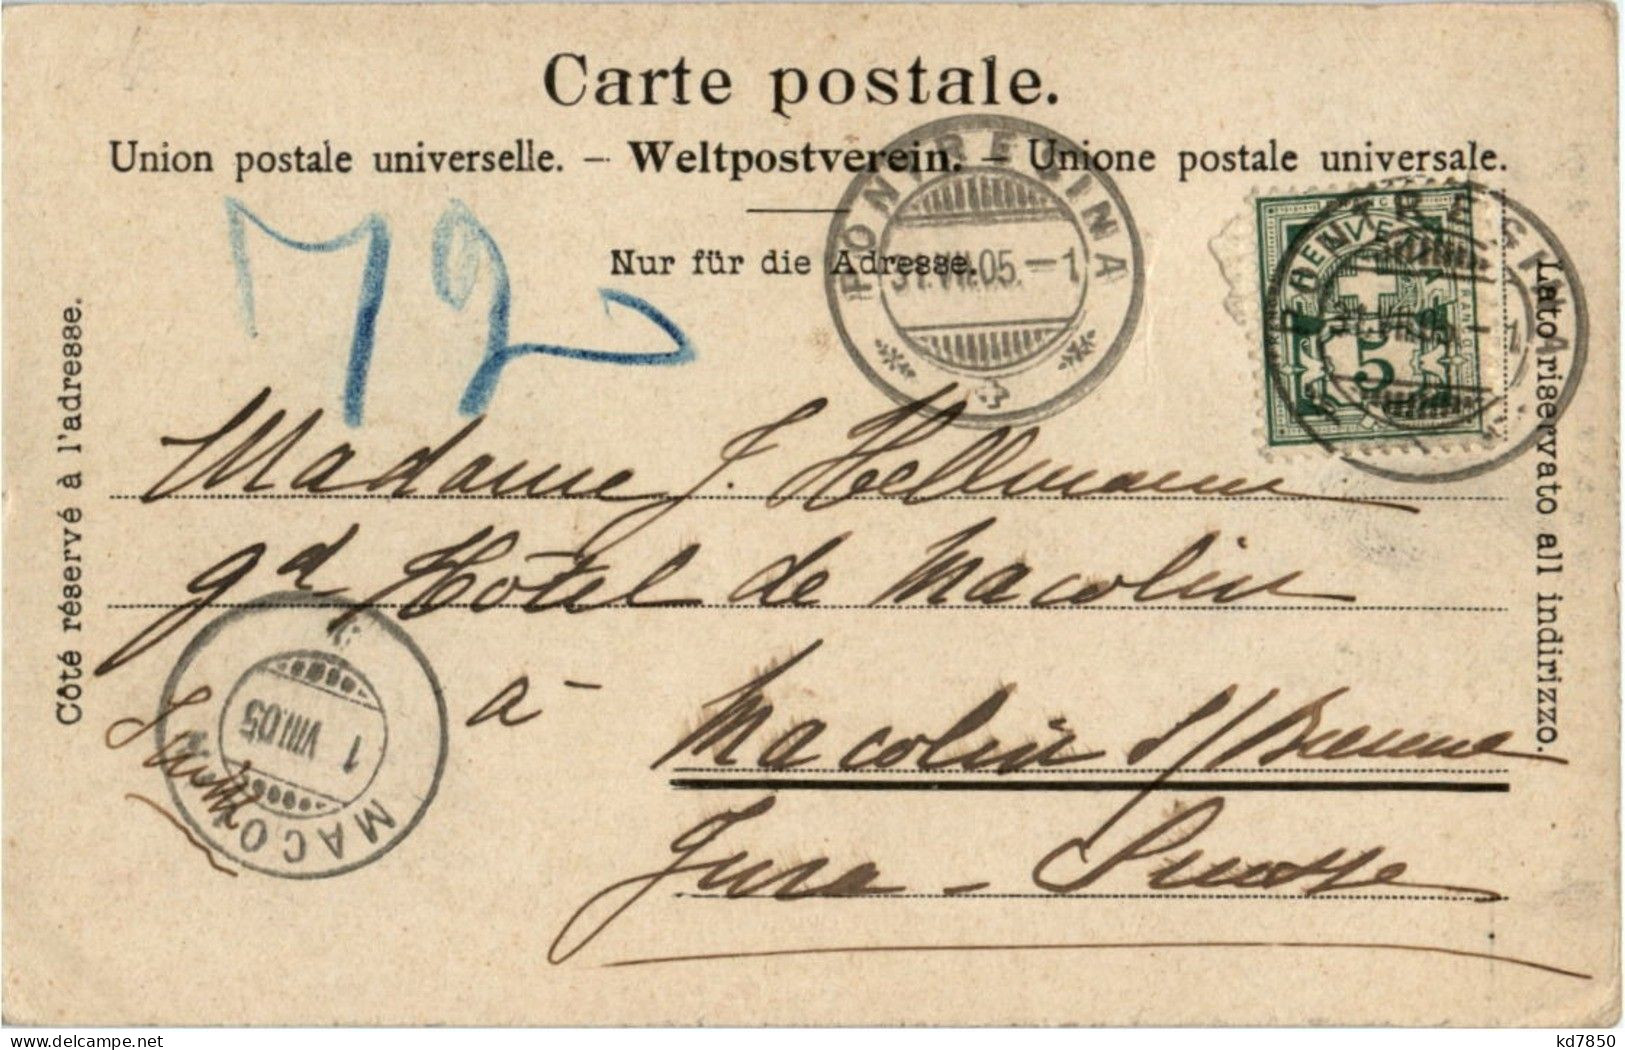 Carte postale.
Union postale universelle. – Weltpostverein. – Unione postale universale.
Nur für die Adresse.
72
PONTRESINA
31.VII.05.–1
PONTRESINA
–1
HELVETIA
5
Côté réservé à l'adresse.
Lato riservato all indirizzo.
Madame J. Hellmann
gd Hôtel de Macolin
à Macolin s/Bienne
Jura - Suisse
MACOLIN
1 VIII.05
kd7850